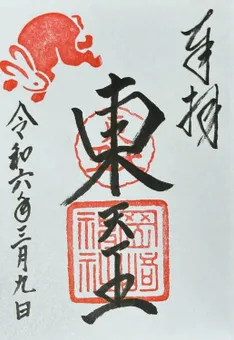 奉拝
東天王
岡崎神社
令和六年三月九日